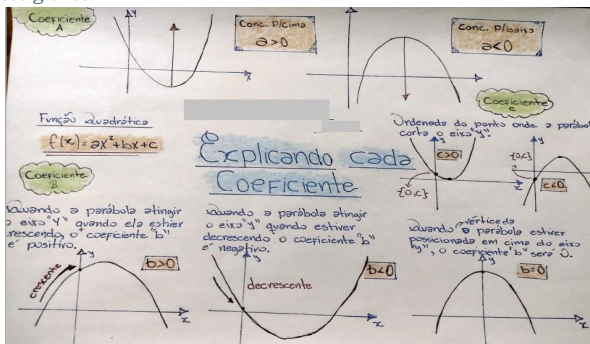 Coeficiente
A
y
x
Conc. P/cima
a>0
y
x
Conc. P/baixo
a<0
Função quadrática
f(x)=ax²+bx+c
Explicando cada
Coeficiente
Coeficiente
C
Ordenada do ponto onde a parábol
corta o eixo "y".
c>0
{0,c}
y
x
{0,c}
c<0
y
x
Coeficiente
B
Quando a parábola atingir
o eixo "y" quando ela estiver
crescendo, o coeficiente "b"
é positivo.
crescente
y
b>0
x
Quando a parábola atingir
o eixo "y" quando estiver
decrescendo o coeficiente "b"
é negativo.
y
decrescente
b<0
x
Quando o vértice da
parábola estiver
posicionada em cima do eixo
"y", o coeficiente "b" será 0.
y
b=0
x